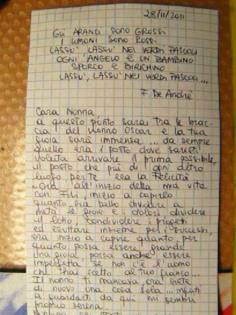 28/11/2011
GLI ARANCI SONO GROSSI
I LIMONI SONO ROSSI
LASSU', LASSU' NEI VERDI PASCOLI
OGNI ANGELO È UN BAMBINO
SPORCO E BIRICHINO
LASSU', LASSU' NEI VERDI PASCOLI...
F. De André
Cara Nonna,
a questo punto sarai tra le brac-
cia del nonno Oscar e la tua
gioia sarà immensa... da sempre
quello era il posto dove saresti
voluta arrivare il prima possibile,
il posto che più di ogni altro
luogo, per te era la Felicità
Ora all'inizio della mia vita
con inizio a capire
quanto sia bello dividere a
metà le gioie e i dolori, dividere
il letto, condividere i progetti
ed esultare insieme per i successi
ora inizio a capire quanto per
quanto possa essere grande
una gioia possa anche essere
imperfetta se non c'è l'uomo
che hai scelto al tuo fianco...
Il nonno ti mancava, ora siete
di nuovo una cosa sola, infatti
a guardarti da qui mi sembri
proprio serena